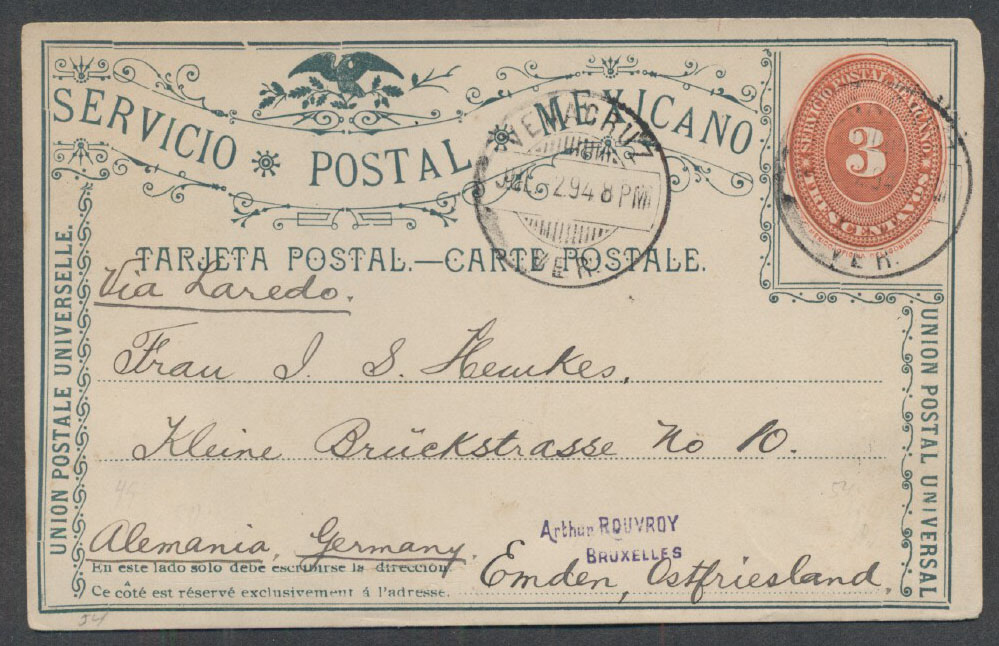 SERVICIO POSTAL MEXICANO
SERVICIO POSTAL MEXICANO
3
TRES CENTAVOS
VERACRUZ
2.94 8 PM
VER.
VER.
TARJETA POSTAL.—CARTE POSTALE.
Via Laredo.
UNION POSTALE UNIVERSELLE.
UNION POSTAL UNIVERSAL
Frau J. S. Hemkes,
Kleine Brückstrasse No 10.
45
54.
Arthur ROUVROY
BRUXELLES
Alemania, Germany.
Emden, Ostfriesland,
En este lado solo debe escribirse la dirección.
Ce côté est réservé exclusivement á l'adresse.
54